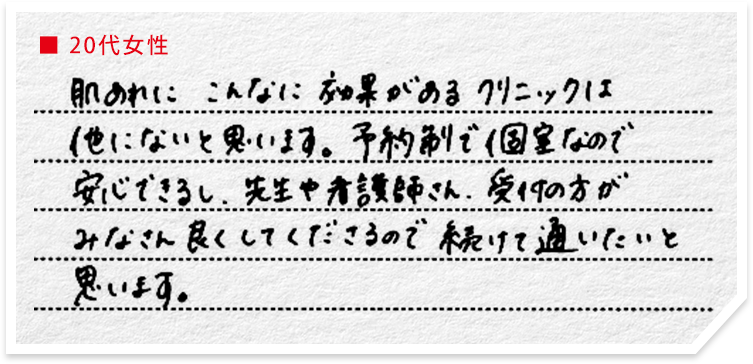 ■ 20代女性
肌あれに こんなに 効果がある クリニックは
他にないと思います。予約制で個室なので
安心できるし、先生や看護師さん、受付の方が
みなさん良くしてくださるので 続けて通いたいと
思います。